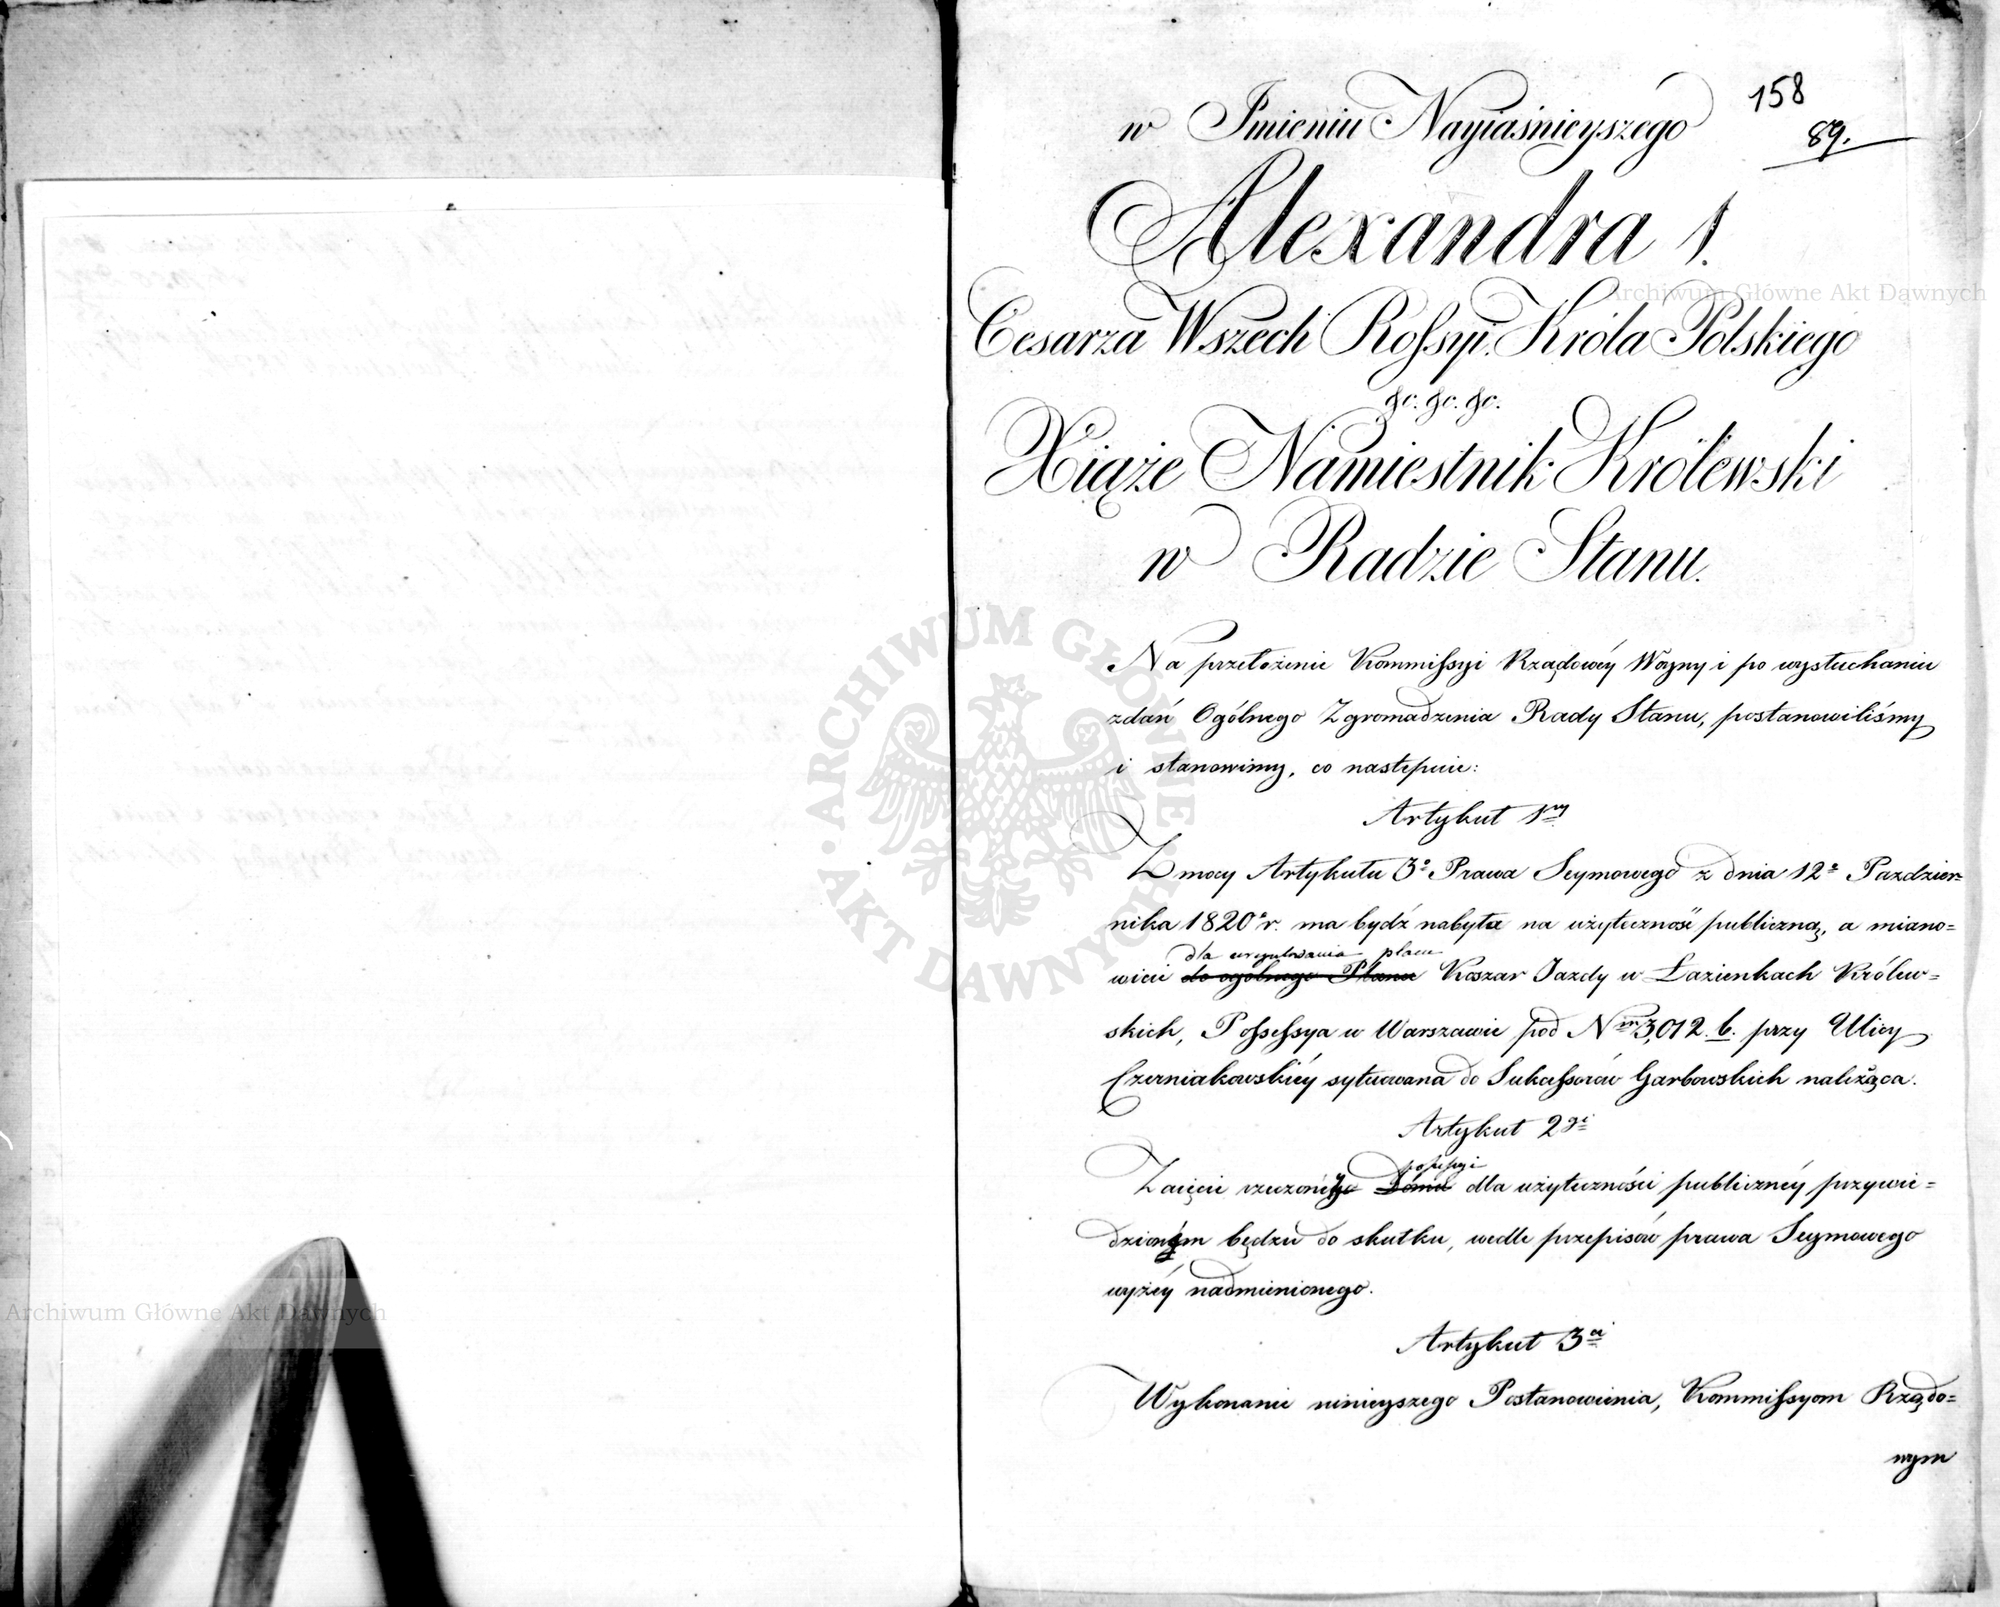 158
89.
w Imieniu Nayiaśnieyszego
Alexandra I.
Cesarza Wszech Rossyi. Króla Polskiego
&c. &c. &c.
Xiąże Namiestnik Królewski
w Radzie Stanu.
Na przełożenie Kommissyi Rządowéy Woyny i po wysłuchaniu
zdań Ogólnego Zgromadzenia Rady Stanu, postanowiliśmy
i stanowimy, co następuie:
Artykuł 1szy
Z mocy Artykułu 3o Prawa Seymowego z dnia 12o Paździer=
nika 1820o r. ma bydź nabyta na użyteczność publiczną, a miano=
dla uregulowania placu
wicie do ogólnego Planu Koszar Jazdy w Łazienkach Królew=
skich, Possessya w Warszawie pod Nrm 3,012. b. przy Ulicy
Czerniakowskiéy sytuowana do Sukcessorów Garbowskich należąca.
Artykuł 2gi
possessyi
Zaięcie rzeczonéy Domu dla użyteczności publicznéy przywie=
dzionym będzie do skutku, wedle przepisów prawa Seymowego
wyżéy nadmienionego.
Artykuł 3ci
Wykonanie ninieyszego Postanowienia, Kommissyom Rządo=
wym
Archiwum Główne Akt Dawnych
Archiwum Główne Akt Dawnych
ARCHIWUM GŁÓWNE AKT DAWNYCH